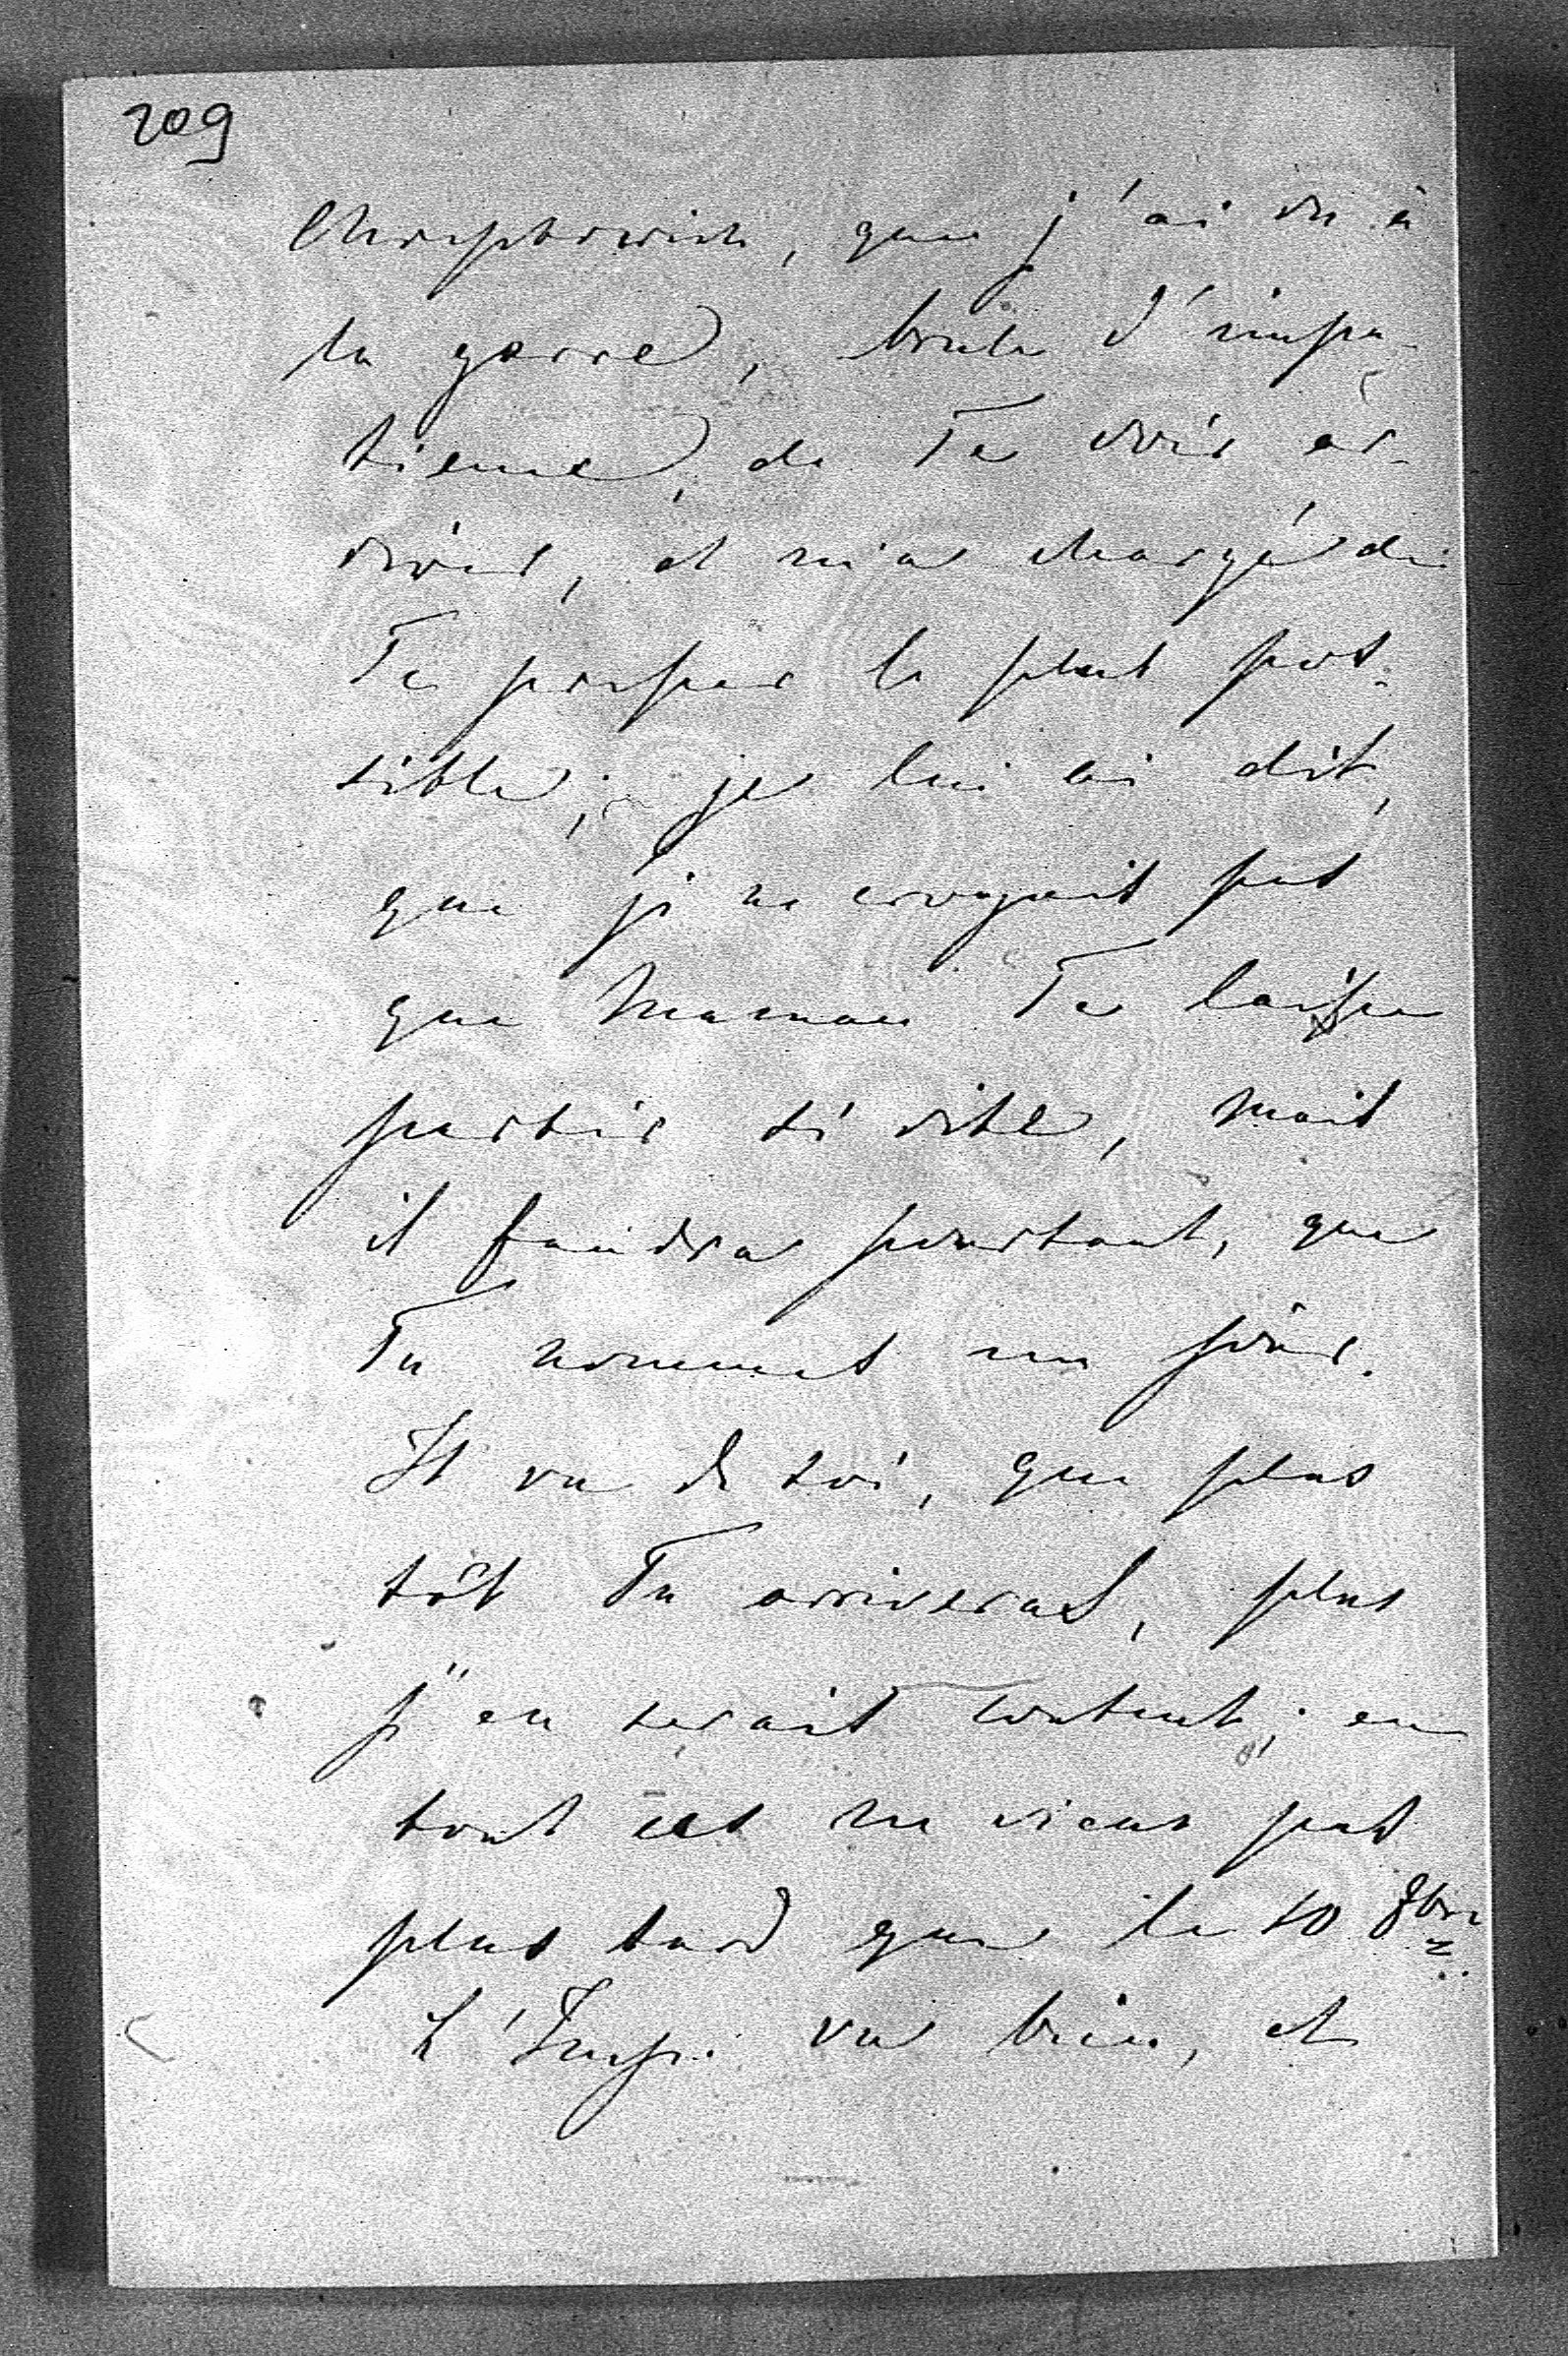 209
Chreptowich, que j'ai vu à
la garre, brule d'impa-
tience, de Te voir ar-
river, et m'a chargé de
Te presser le plus pos-
sible; je lui ai dit,
que je ne croyais pas
que Maman Te laisse
partir si vite, mais
il faudra pourtant, que
Tu nommes un jour.
Il va de soi, que plus
tôt Tu arriveras, plus
j'en serais content; en
tout cas ne viens pas
plus tard que le 10 8bre
L'Imp. va bien, et